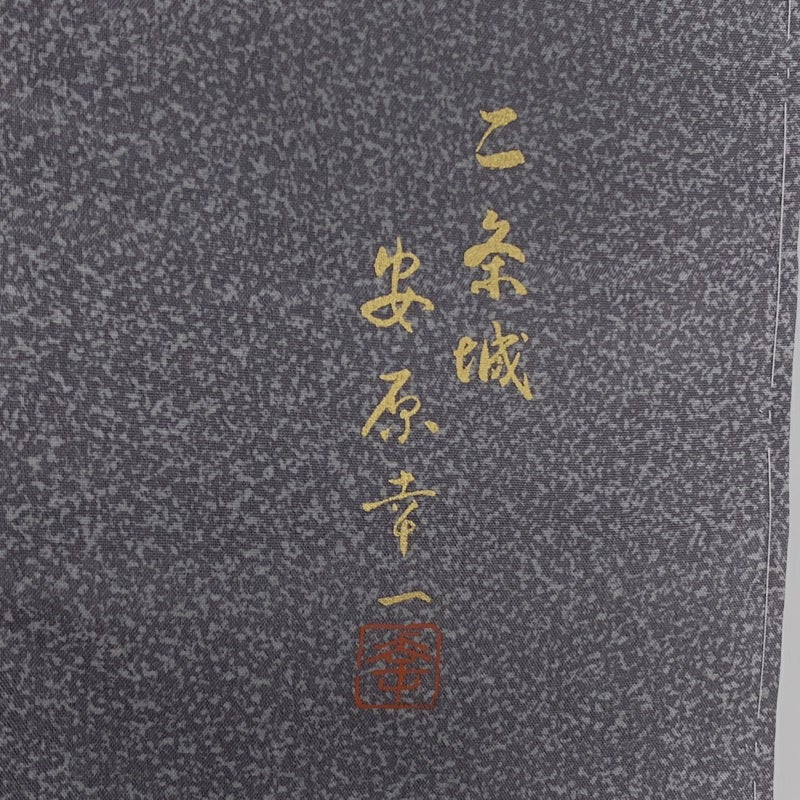 二条城
安原幸一